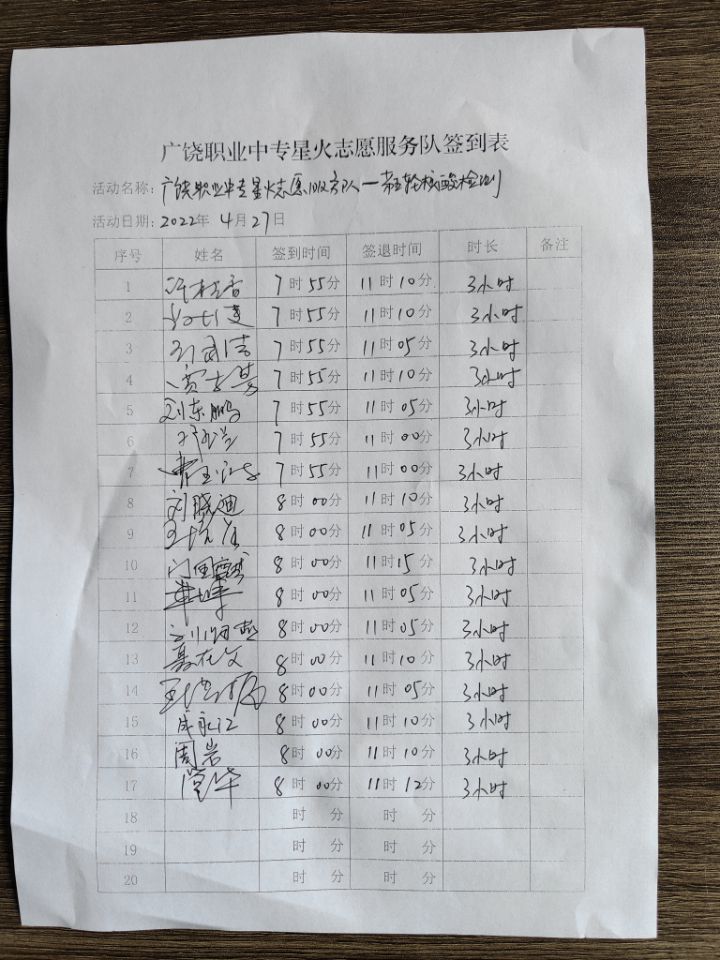 广饶职业中专星火志愿服务队签到表
活动名称：广饶职业中专星火志愿服务队—第五轮核酸检测
活动日期：2022年4月27日
序号 姓名 签到时间 签退时间 时长 备注
1 7时55分 11时10分 3小时
2 7时55分 11时10分 3小时
3 7时55分 11时05分 3小时
4 7时55分 11时10分 3小时
5 刘东鹏 7时55分 11时05分 3小时
6 7时55分 11时00分 3小时
7 7时55分 11时00分 3小时
8 刘晓迪 8时00分 11时10分 3小时
9 8时00分 11时05分 3小时
10 8时00分 11时15分 3小时
11 8时00分 11时05分 3小时
12 8时00分 11时05分 3小时
13 8时00分 11时10分 3小时
14 8时00分 11时05分 3小时
15 8时00分 11时10分 3小时
16 周岩 8时00分 11时10分 3小时
17 8时00分 11时12分 3小时
18 时 分 时 分
19 时 分 时 分
20 时 分 时 分